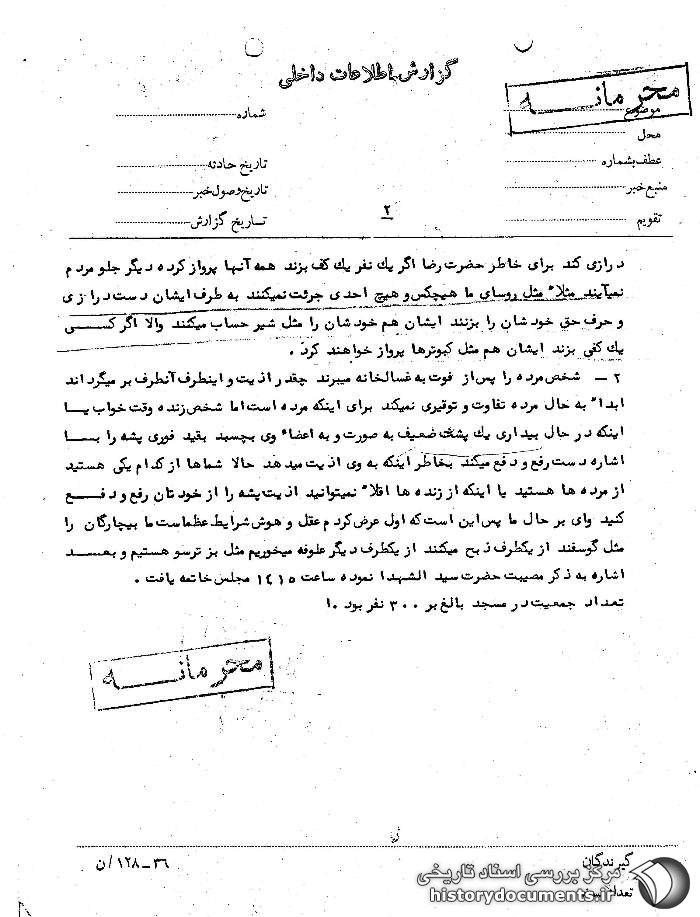 گزارش اطلاعات داخلی
محرمانه
موضوع
شماره
محل
عطف بشماره
تاریخ حادثه
منبع خبر
تاریخ وصول خبر
تقویم
۲
تاریخ گزارش
درازی کند برای خاطر حضرت رضا اگر یك نفر یك کف بزند همه آنها پرواز کرده دیگر جلو مردم
نمیآیند مثلا" مثل روسای ما هیچکس و هیچ احدی جرئت نمیکنند به طرف ایشان دست درازی
و حرف حق خودشان را بزنند ایشان هم خودشان را مثل شیر حساب میکنند والا اگر کسی
یك کفی بزند ایشان هم مثل کبوترها پرواز خواهند کرد .
۲ – شخص مرده را پس از فوت به غسالخانه میبرند چقدر اذیت و اینطرف آنطرف بر میگرداند
ابدا" به حال مرده تفاوت و توقیری نمیکند برای اینکه مرده است اما شخص زنده وقت خواب یا
اینکه در حال بیداری یك پشه ضعیف به صورت و به اعضاء وی بچسبد بقید فوری پشه را بسا
اشاره دست رفع و دفع میکند بخاطر اینکه به وی اذیت میدهد حالا شماها از کدام یکی هستید
از مرده ها هستید یا اینکه از زنده ها اقلا" نمیتوانید اذیت پشه را از خودتان رفع و دفع
کنید وای بر حال ما پس این است که اول عرض کردم عقل و هوش شرایط عظماست ما بیچارگان را
مثل گوسفند از یکطرف ذبح میکنند از یکطرف دیگر علوفه میخوریم مثل بز ترسو هستیم و بعد
اشاره به ذکر مصیبت حضرت سید الشهدا نموده ساعت ۱۴۱۵ مجلس خاتمه یافت .
تعداد جمعیت در مسجد بالغ بر ۳۰۰ نفر بود .ا
محرمانه
گیرندگان
۳۶–۱۲۸/ن
مرکز بررسی اسناد تاریخی
historydocuments.ir